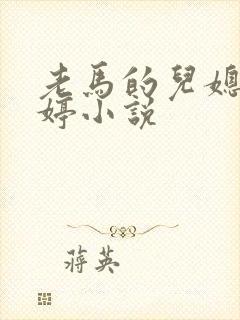 老馬的兒媳
婷小説
蔣英